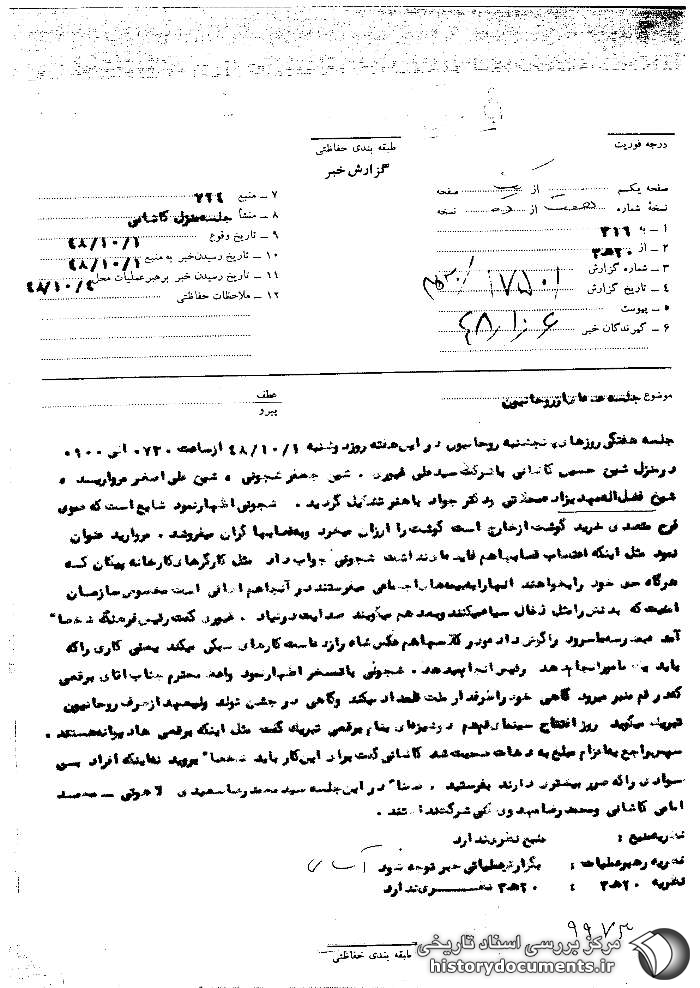 درجه فوریت
طبقه بندی حفاظتی
گزارش خبر
صفحه یکم از یک صفحه
نسخهٔ شماره هفت از ده نسخه
۱ ـ به ۳۱۶
۲ ـ از ۲۰هـ۳
۳ ـ شماره گزارش
۴ ـ تاریخ گزارش
۵ ـ پیوست
۶ ـ گیرندگان خبر
۷ ـ منبع
۸ ـ منشأ جلسه منزل کاشانی
۹ ـ تاریخ وقوع ۴۸/۱۰/۱
۱۰ ـ تاریخ رسیدن خبر به منبع ۴۸/۱۰/۱
۱۱ ـ تاریخ رسیدن خبر برهبر عملیات محل ۴۸/۱۰/۴
۱۲ ـ ملاحظات حفاظتی
موضوع جلسه روحانیون
عطف
پیرو
جلسه هفتگی روزهای پنجشنبه روحانیون در این هفته روز دوشنبه ۴۸/۱۰/۱ از ساعت ۰۷۳۰ الی ۰۹۰۰
در منزل شیخ حسین کاشانی با شرکت سید علی غیوری ـ شیخ جعفر شجونی ـ شیخ علی اصغر مروارید ـ
شیخ فضل اله مهدیزاده محلاتی و دکتر جواد باهنر تشکیل گردید . شجونی اظهار نمود شایع است که
فرح متصدی خرید گوشت از خارج است گوشت را ارزان میخرد و به قصابها گران میفروشد . مروارید عنوان
نمود مثل اینکه اعتصاب قصابها هم فایده نداشت شجونی جواب داد مثل کارگرهای کارخانه پیکان که
هرگاه حق خود را بخواهند آنها را به بیمه های اجتماعی میفرستند در آنجا هم اطاقی است مخصوص سازمان
امنیت که بدنش را مثل ذغال سیاه میکنند و بعد هم میگویند صدایت در نیاد . غیوری گفت رئیس فرهنگ شخصاً
آمد مدرسه ما سرود را گوش داد و در کلاسها هم عکس شاه را زده است کارهای سبکی میکند یعنی کاری را که
باید یک مامور انجام دهد رئیس انجام میدهد . شجونی با تمسخر اظهار نمود واعظ محترم جناب آقای برقعی
که در قم منبر میرود گاهی خود را طرفدار ملت قلمداد میکند و گاهی در جشن تولد ولیعهد از طرف روحانیون
تبریک میگوید روز افتتاح سینمای قم هم بنام برقعی تبریک گفت مثل اینکه برقعی ها دیوانه هستند .
سپس راجع به اعزام مبلغ به دهات صحبت شد کاشانی گفت برای این کار باید شخصاً بروید نه اینکه افراد بی
سوادی را که صور بیشتری دارند بفرستید . ضمناً در این جلسه سید محمد رضا سعیدی لاهوتی ـ محمد
امامی کاشانی و محمد رضا مهدوی کنی شرکت داشتند .
نظریه منبع : منبع نظری ندارد
نظریه رهبر عملیات : بگزارش عملیاتی خبر توجه شود
نظریه ۲۰هـ۳ : ۲۰هـ۳ نظری ندارد
۹۹۷۳
طبقه بندی حفاظتی
مرکز بررسی اسناد تاریخی
historydocuments.ir